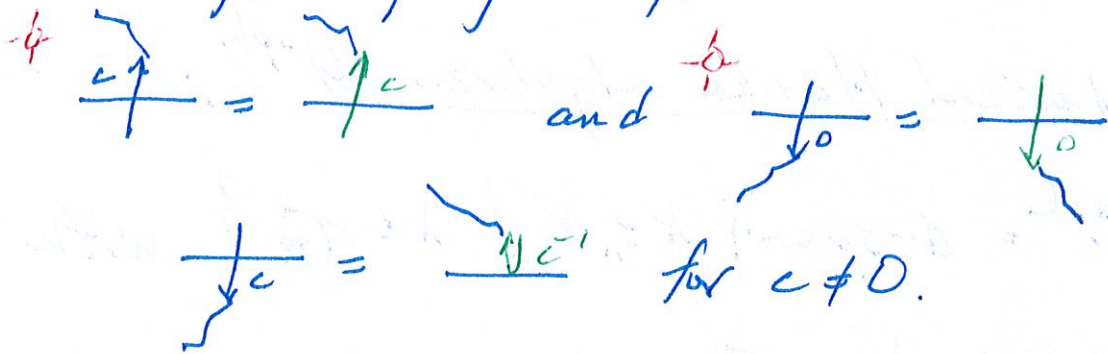 c = c and 0 = 0
c = c⁻¹ for c ≠ 0.